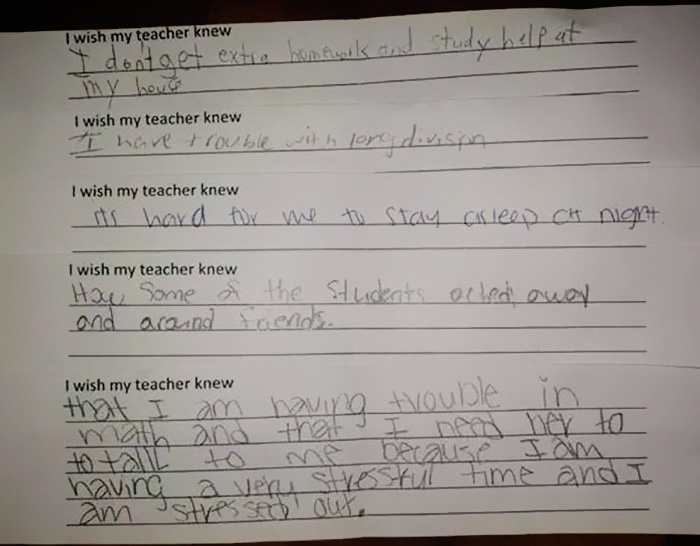 I wish my teacher knew
I don't get extra homework and study help at
my house
I wish my teacher knew
I have trouble with long division
I wish my teacher knew
its hard for me to stay asleep at night
I wish my teacher knew
How some of the students acted away
and around friends.
I wish my teacher knew
that I am having trouble in
math and that I need her to
to talk to me because I am
having a very stressful time and I
am stressed out.